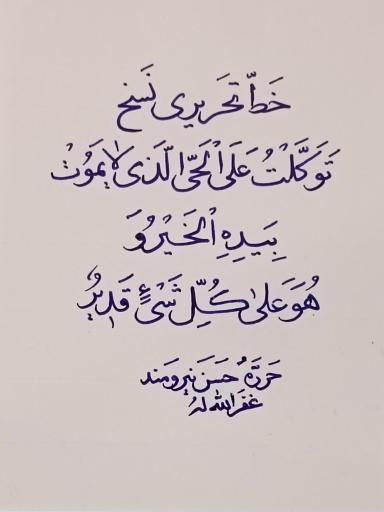 خَطّ تَحَریری نَسَخ
تَوَکَّلْتُ عَلَی الْحَیِّ الَّذی لایَمَوُتْ
بِیَدِهِ الْخَیْرُ وَ
هُوَ عَلیٰ کُلِّ شَیْءٍ قَدیٖرٌ
حَرَّرَهُ حَسَن نیرومند
غَفَرَاللّٰه لَهُ